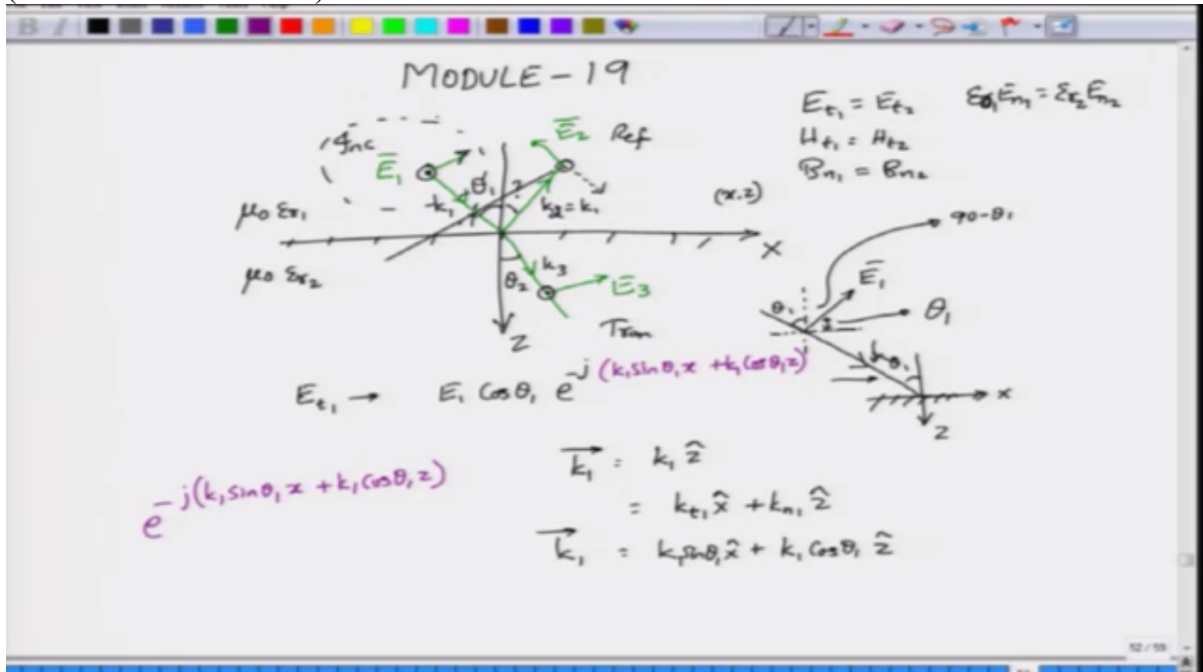 MODULE-19
E̅t₁ = E̅t₂ εr₁E̅n₁ = εr₂E̅n₂
Ht₁ = Ht₂
Bn₁ = Bn₂
Inc
E̅₁
θ₁
E̅₂ Ref
k₁
k₂=k₁
(x,z)
μ₀ εr₁
X
μ₀ εr₂
θ₂
k₃
E̅₃
Z
Tran
90-θ₁
E̅₁
θ₁
θ₁
k₁
θ₁
x
Z
Et₁ → E₁ cosθ₁ e^-j(k₁sinθ₁x + k₁cosθ₁z)
e^-j(k₁sinθ₁x + k₁cosθ₁z)
k⃗₁ = k₁ ẑ
= kt₁x̂ + kn₁ẑ
k⃗₁ = k₁sinθ₁x̂ + k₁cosθ₁ ẑ
52 / 59